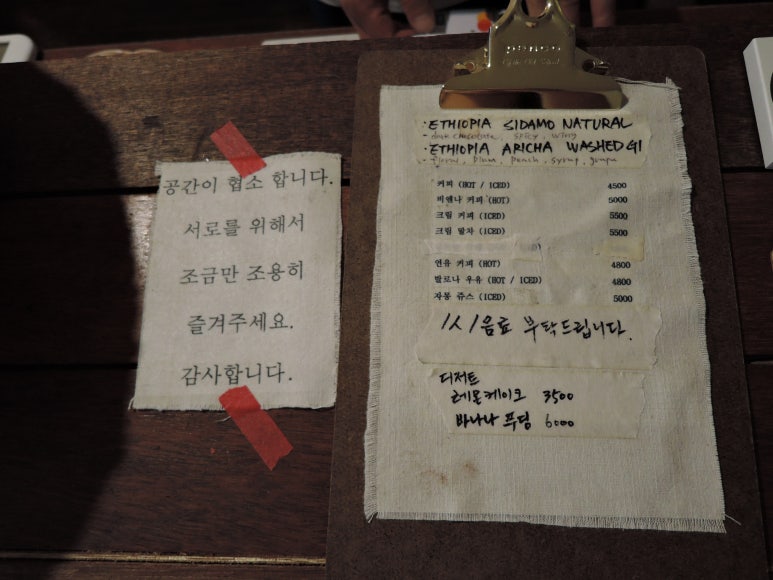 공간이 협소 합니다.
서로를 위해서
조금만 조용히
즐겨주세요.
감사합니다.
penco
· ETHIOPIA SIDAMO NATURAL
- dark chocolate, spicy, winy
· ETHIOPIA ARICHA WASHED G1
- floral, plum, peach, syrup, grape
커피 (HOT / ICED) 4500
비엔나 커피 (HOT) 5000
크림 커피 (ICED) 5500
크림 말차 (ICED) 5500
연유 커피 (HOT) 4800
발로나 우유 (HOT / ICED) 4800
자몽 쥬스 (ICED) 5000
1人 1음료 부탁드립니다.
디저트
레몬케이크 3500
바나나 푸딩 6000